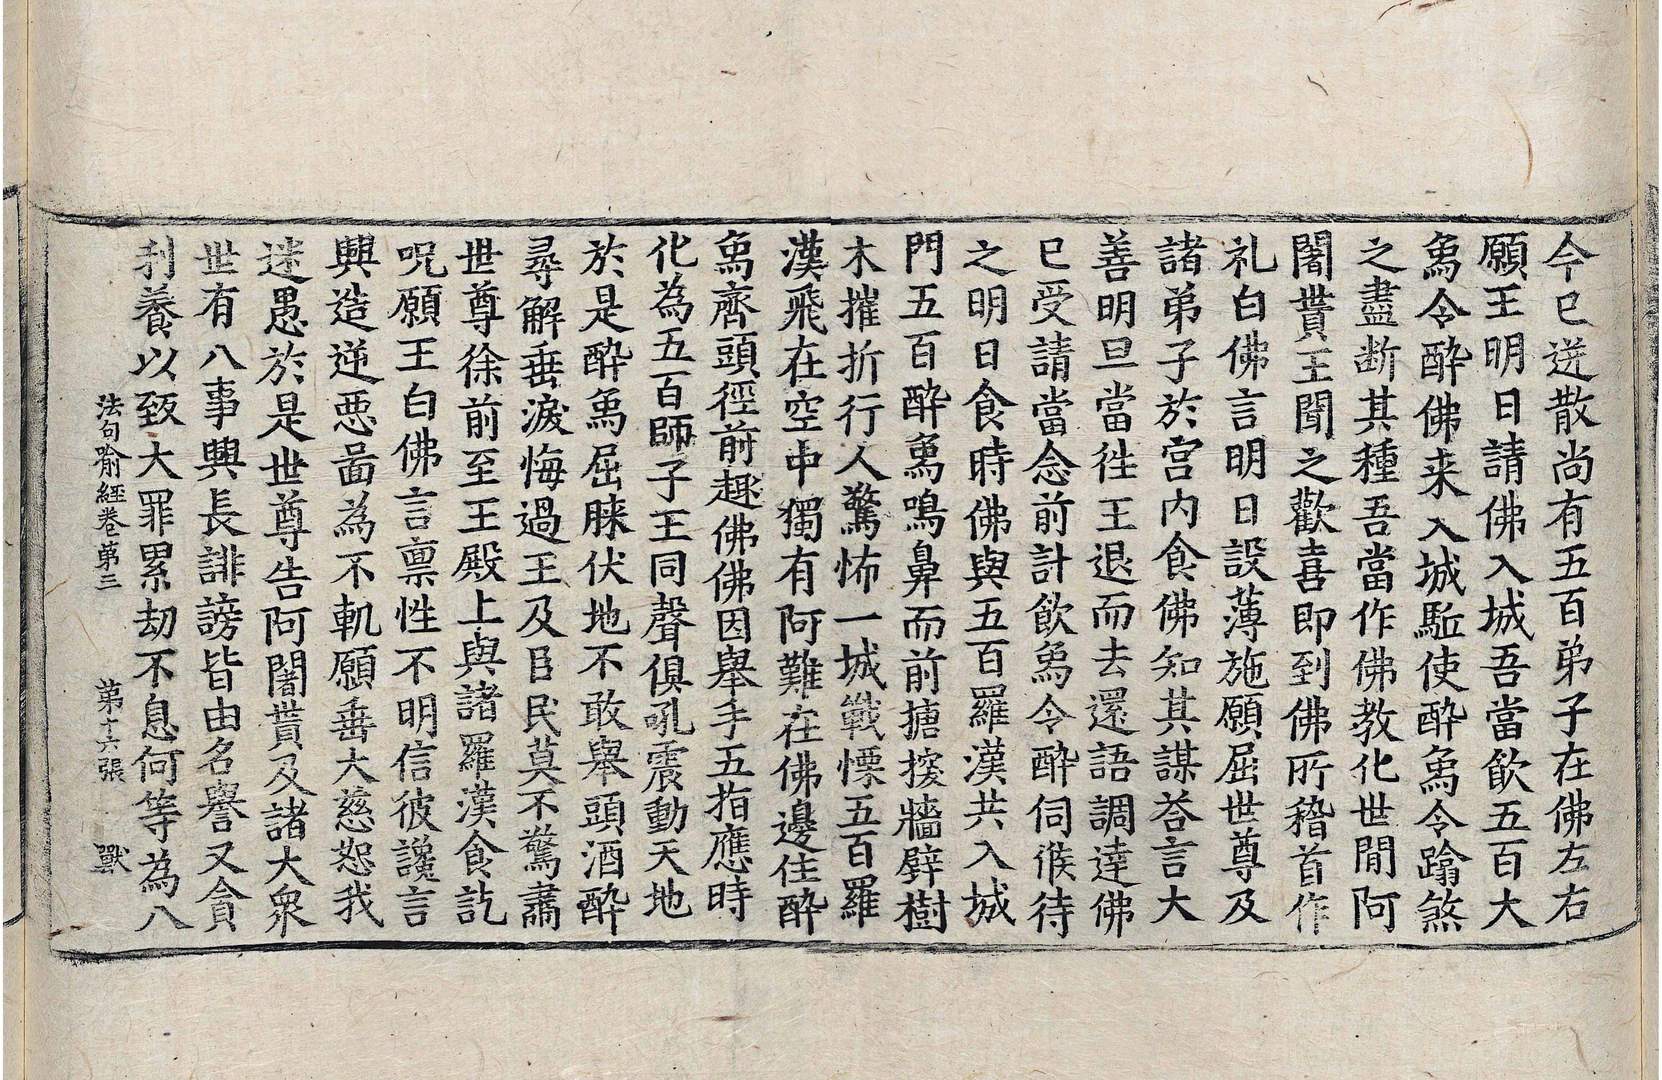 今已迸散尚有五百弟子在佛左右
願王明日請佛入城吾當飲五百大
為令醉佛来入城駈使醉為令蹋煞
之盡断其種吾當作佛教化世間阿
闍貰王聞之歡喜即到佛所稽首作
礼白佛言明日設薄施願屈世尊及
諸弟子於宫内食佛知其謀荅言大
善明旦當徃王退而去還語調達佛
已受請當念前計飲為令醉伺候待
之明日食時佛與五百羅漢共入城
門五百醉為鳴鼻而前搪揬牆壁樹
木摧折行人驚怖一城戰慄五百羅
漢飛在空中獨有阿難在佛邊住醉
為齊頭徑前趣佛佛因舉手五指應時
化為五百師子王同聲俱吼震動天地
於是醉為屈膝伏地不敢舉頭酒醉
尋解垂淚悔過王及臣民莫不驚肅
世尊徐前至王殿上與諸羅漢食訖
呪願王白佛言禀性不明信彼讒言
興造逆惡啚為不軌願垂大慈恕我
迷愚於是世尊告阿闍貰及諸大衆
世有八事興長誹謗皆由名譽又貪
利養以致大罪累劫不息何等為八
法句喻經卷第三 第十六張 獸